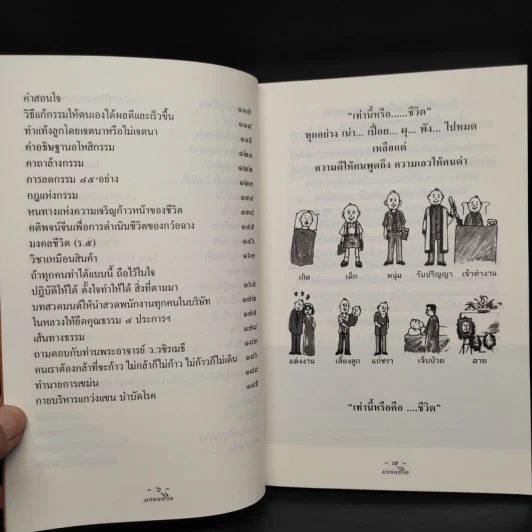 คำสอนใจ ๑๑๗
วิธีแก้กรรมให้ตนเองได้ผลดีและเร็วขึ้น ๑๑๘
ทำแท้งลูกโดยเจตนาหรือไม่เจตนา ๑๑๙
คำอธิษฐานอโหสิกรรม ๑๒๑
คาถาล้างกรรม ๑๒๒
การลดกรรม ๔๕ อย่าง ๑๒๓
กฎแห่งกรรม ๑๓๔
หนทางแห่งความเจริญก้าวหน้าของชีวิต ๑๓๙
คติพจน์จีนเพื่อการดำเนินชีวิตของกว๋อฉาง ๑๔๕
มงคลชีวิต (ร.๕) ๑๔๖
วิชาเหมือนสินค้า ๑๖๓
ถ้าทุกคนทำได้แบบนี้ ถือไว้ในใจ
ปฏิบัติให้ได้ ตั้งใจทำให้ได้ สิ่งที่ตามมา ๑๖๕
บทสวดมนต์ให้นำสวดพนักงานทุกคนในบริษัท ๑๗๒
ในหลวงให้ยึดคุณธรรม ๔ ประการฯ ๑๗๕
เส้นทางธรรม
ถามตอบกับท่านพระอาจารย์ ว.วชิรเมธี
คนเราต้องกล้าที่จะก้าว ไม่กล้าก็ไม่ก้าว ไม่ก้าวก็ไม่เดิน
ทำนายการเขม่น ๑๘๘
กายบริหารแกว่งแขน บำบัดโรค ๑๘๙
- ๖ -
มงคลชีวิต
"เท่านี้หรือ......ชีวิต"
ทุกอย่าง เน่า... เปื่อย... ผุ... พัง... ไปหมด
เหลือแต่
ความดีให้คนพูดถึง ความเลวให้คนด่า
เกิด เด็ก หนุ่ม รับปริญญา เข้าทำงาน
แต่งงาน เลี้ยงลูก แก่ชรา เจ็บป่วย ตาย
"เท่านี้หรือคือ ....ชีวิต"
- ๗ -
มงคลชีวิต